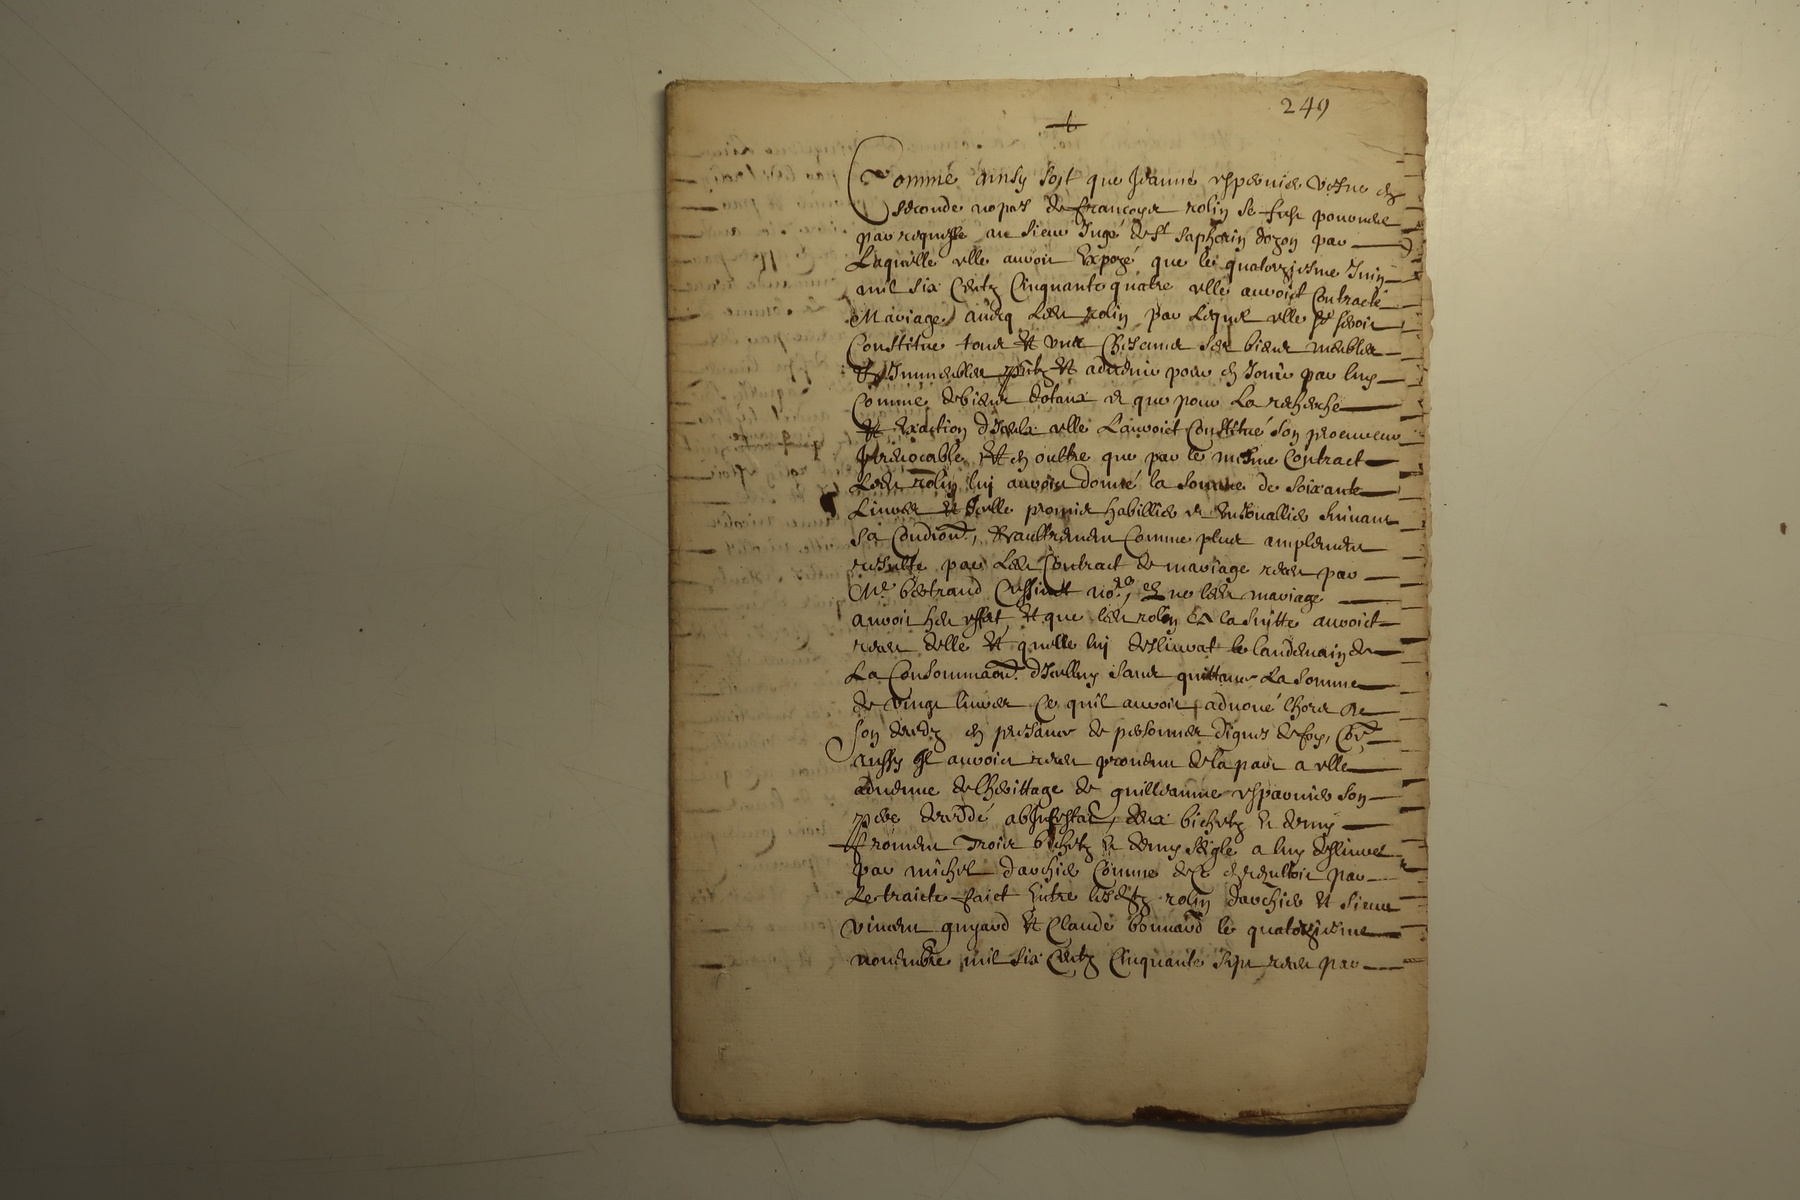 249
Comme ainsy soit que Jeanne esparnier vefve en
seconde nopces de françoys rolin se fust pourveue
par requeste au sieur Juge de St saphorin dozon par
Laquelle elle auroit Expozé que le quatorziesme Juin
mil six Centz Cinquante quatre elle auroict Contracté
Mariage avecq Led rolin par Lequel elle se seroit
Constitue tous et ungs Chascuns ses biens meubles
et Immeubles pntz et advenir pour en Jouir par luy
Comme de biens dotaux et que pour La recherche
et Exaction d'Iceux elle L'auroict Constitué son procureur
Irrevocable Et en oultre que par le mesme Contract
Led rolin luj auroit donné la somme de soixante
Livres et Icelle promis habillier et enjouallier suivant
sa Condion, Et aultrement Comme plus amplement
resulte par Led Contract de mariage receu par
Me bertrand no.re, led mariage
auroit heu effect et que led rolin En la suitte auroict
receu delle et quelle luj deslivrat le landemain de
La Consommaon d'Icelluy sans quittance La somme
de vingt livres Ce quil auroit advoué lhors de
son decedz en presance de personnes dignes de foy, Co
aussy Il auroit receu provenu de la part a elle
advenue de lherittage de guilleaume esparnier son
pere decedé abintestat, deux bichetz et demy
froment Trois bichetz et demy seigle a luy deslivres
par michel darchier Comme de ce en resultoit par
Le traicte faict Entre lesdtz rolin darchier et sieurs
vincent guyard et Claude bonnard le quatorziesme
novembre mil six Centz Cinquante sept receu par